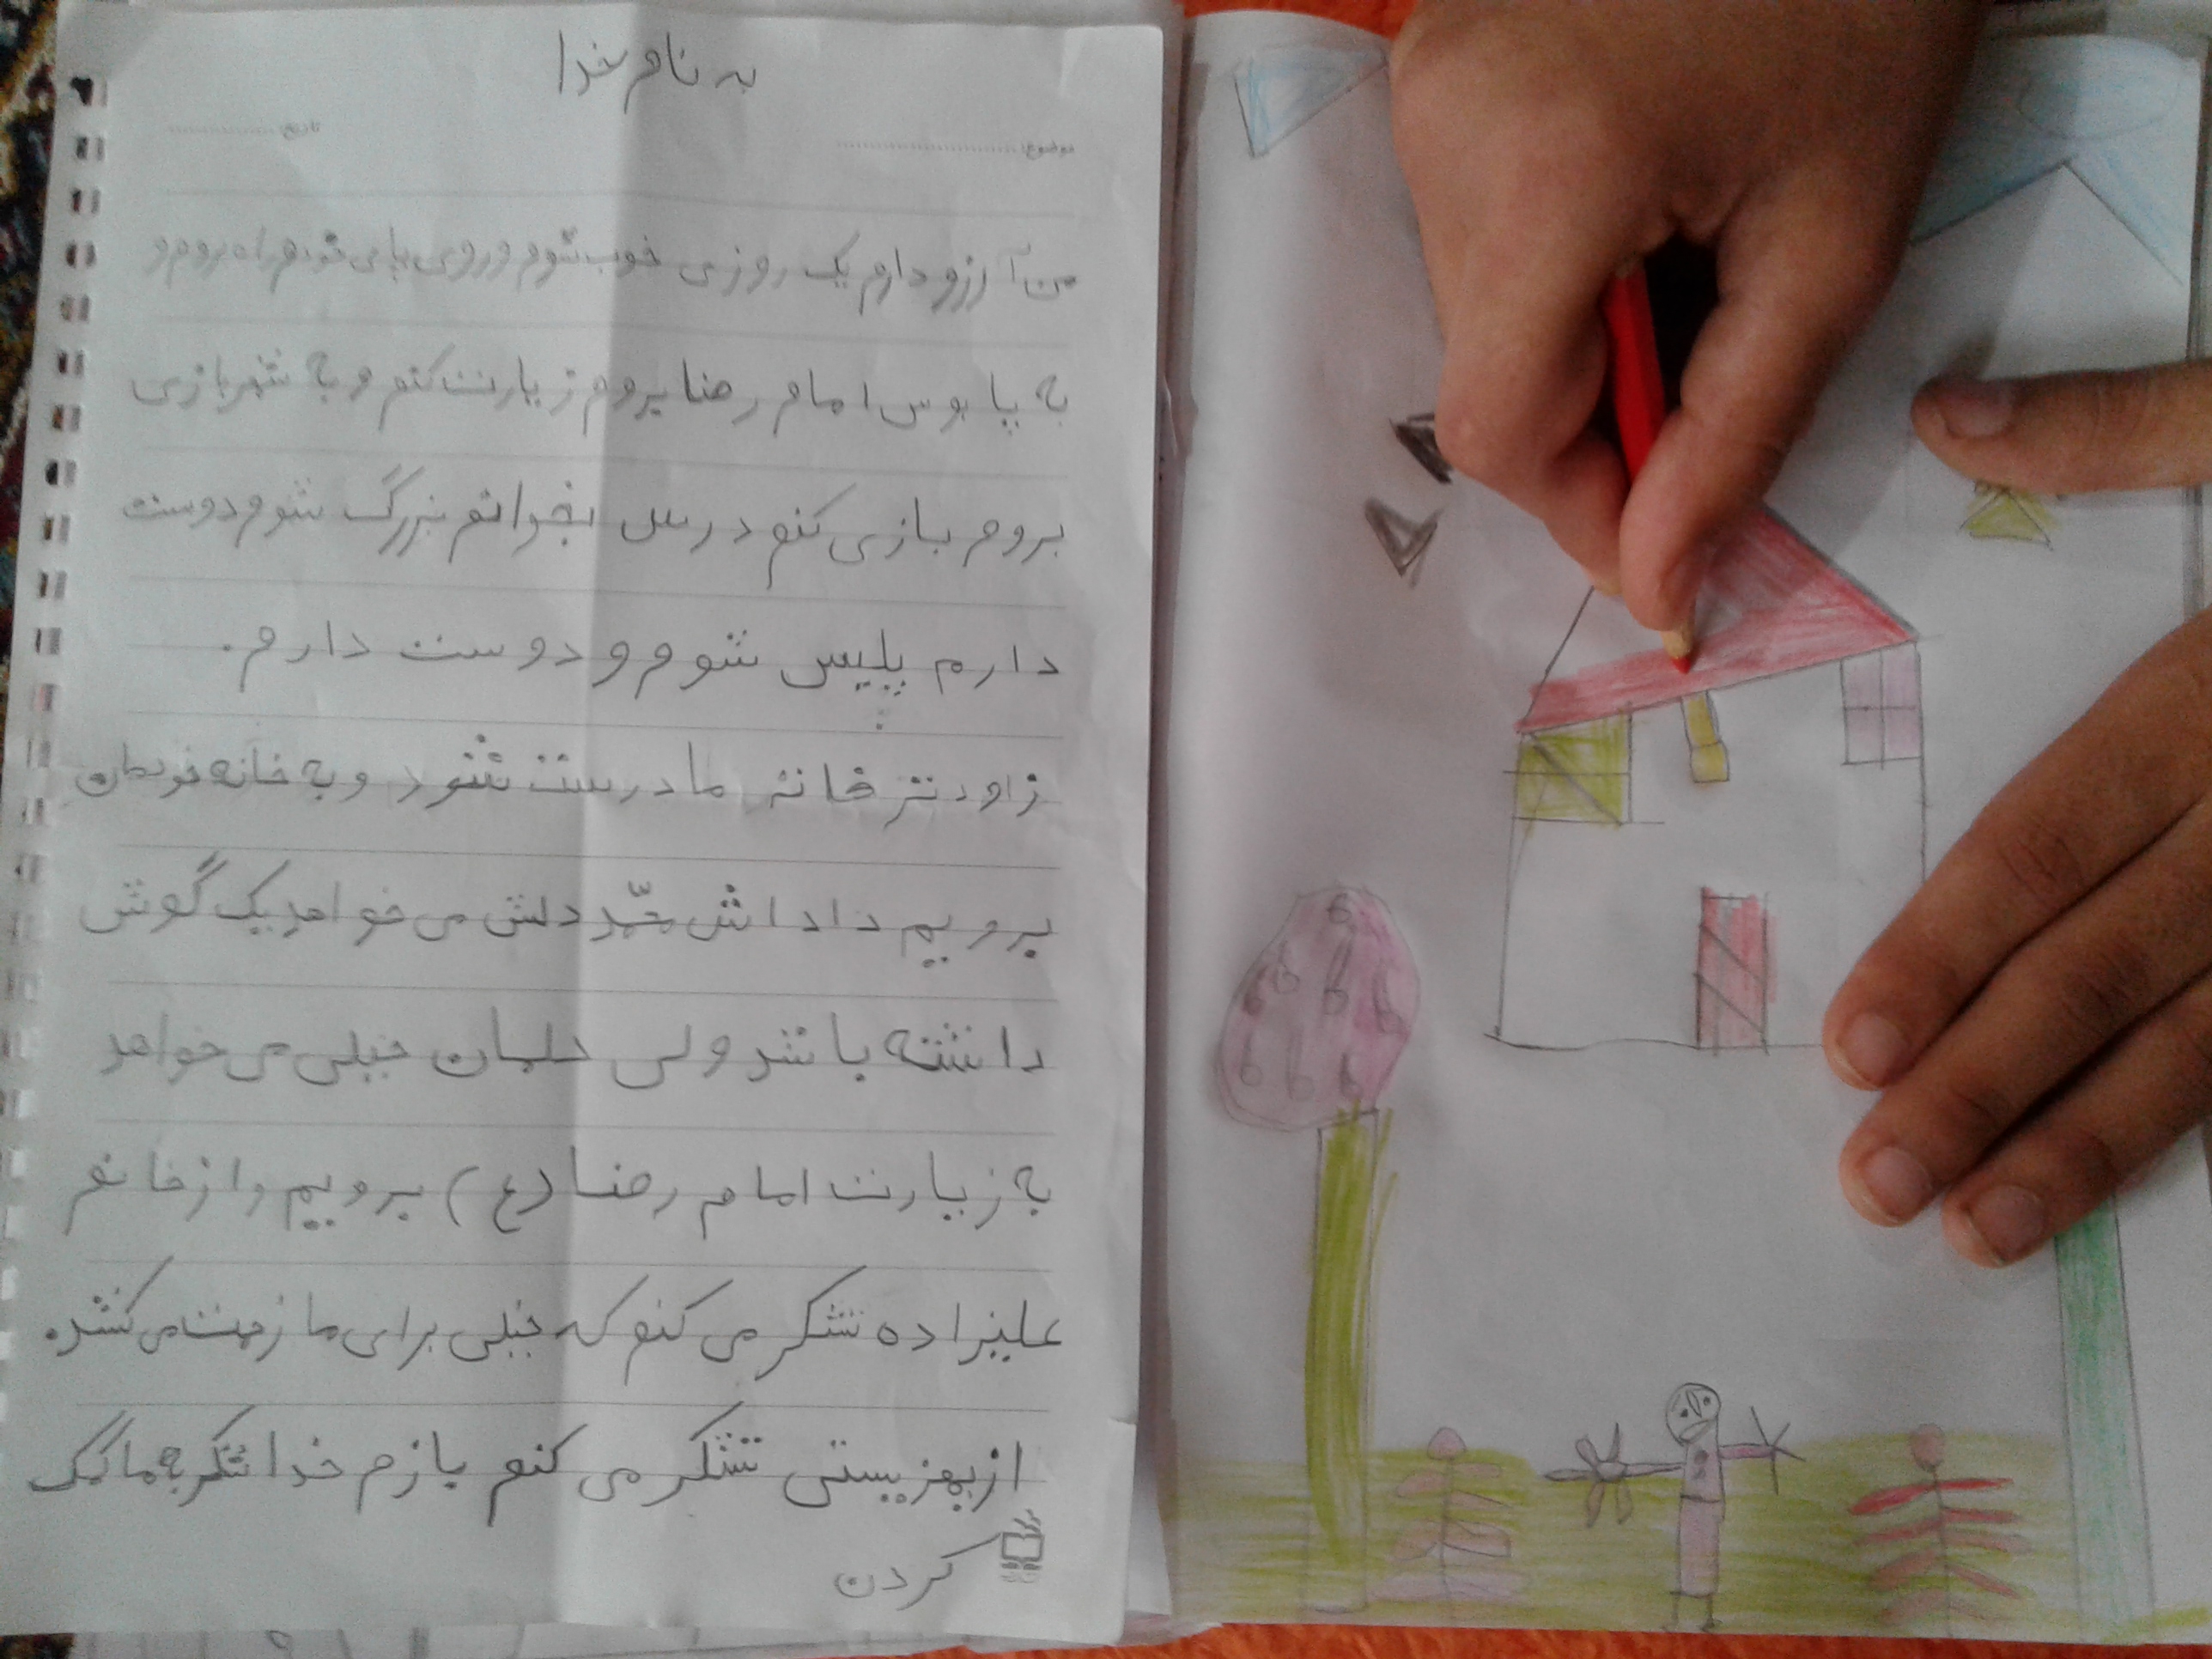 به نام خدا
موضوع: تاریخ:
من آرزو دارم یک روزی خوب شوم و روی پای خودم راه بروم و
به پا بوس امام رضا بروم زیارت کنم و به شهربازی
بروم بازی کنم درس بخوانم بزرگ شوم دوست
دارم پلیس شوم و دوست دارم.
زاودتر خانه ما درست شود و به خانه خودمان
برویم داداش محمّد دلش می خواهد یک گوش
داشته باشد ولی دلمان خیلی می خواهد
به زیارت امام رضا (ع) برویم و از خانم
علیزاده تشکر می کنم که خیلی برای ما زحمت می کشد.
از بهزیستی تشکر می کنم بازم خدا شکر به ما کمک
کردن